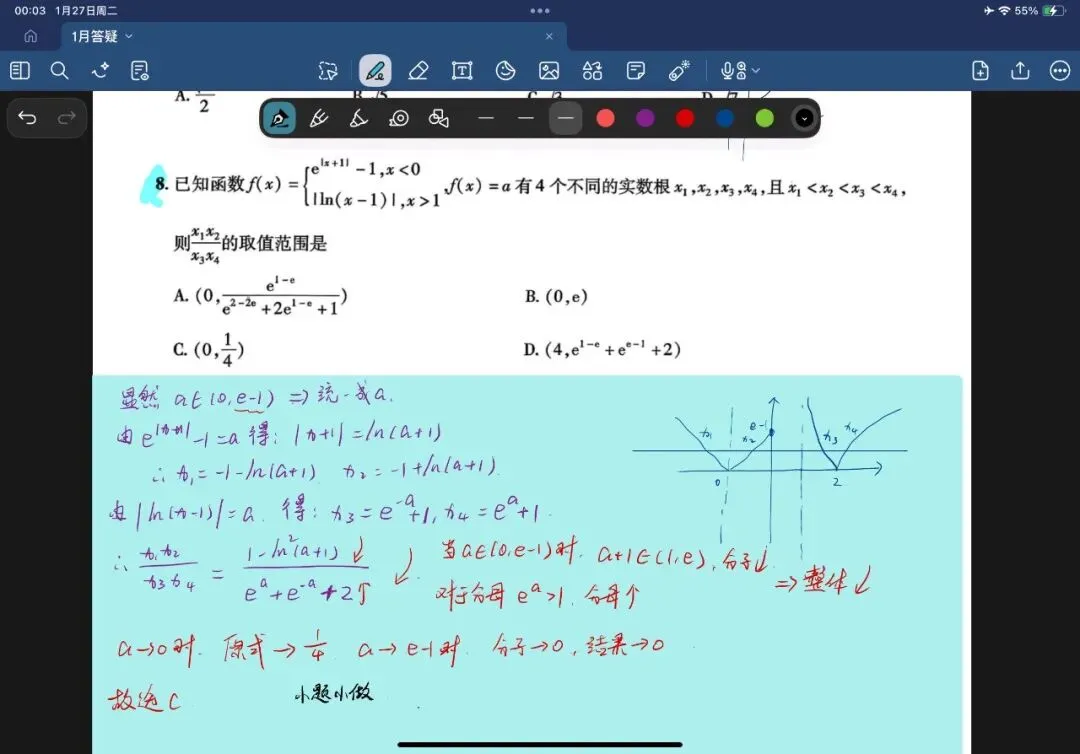 00:03 1月27日周二
55%
1月答疑
A. 2
8. 已知函数f(x)={e^|x+1| -1,x<0
|ln(x-1)|,x>1 ,f(x)=a有4个不同的实数根x₁,x₂,x₃,x₄,且x₁<x₂<x₃<x₄,
则x₁x₂/x₃x₄的取值范围是
A. (0, e^(1-e)/(e^(2-2e)+2e^(1-e)+1))
B. (0,e)
C. (0,1/4)
D. (4,e^(1-e)+e^(e-1)+2)
显然 a∈(0,e-1) ⇒统一成a.
由e^|x+1|-1=a得: |x+1|=ln(a+1)
∴x₁=-1-ln(a+1) x₂=-1+ln(a+1).
由|ln(x-1)|=a. 得: x₃=e^-a+1, x₄=e^a+1.
∴ x₁x₂/x₃x₄ = (1-ln²(a+1))↓/(e^a+e^-a+2)↑ ↓
当a∈(0,e-1)时. a+1∈(1,e), 分子↓
对于分母 e^a>1. 分母↑
⇒整体↓
x₁ x₂ e-1 x₃ x₄
0 2
a→0时. 原式→1/4 a→e-1时. 分子→0, 结果→0
故选C
小题小做